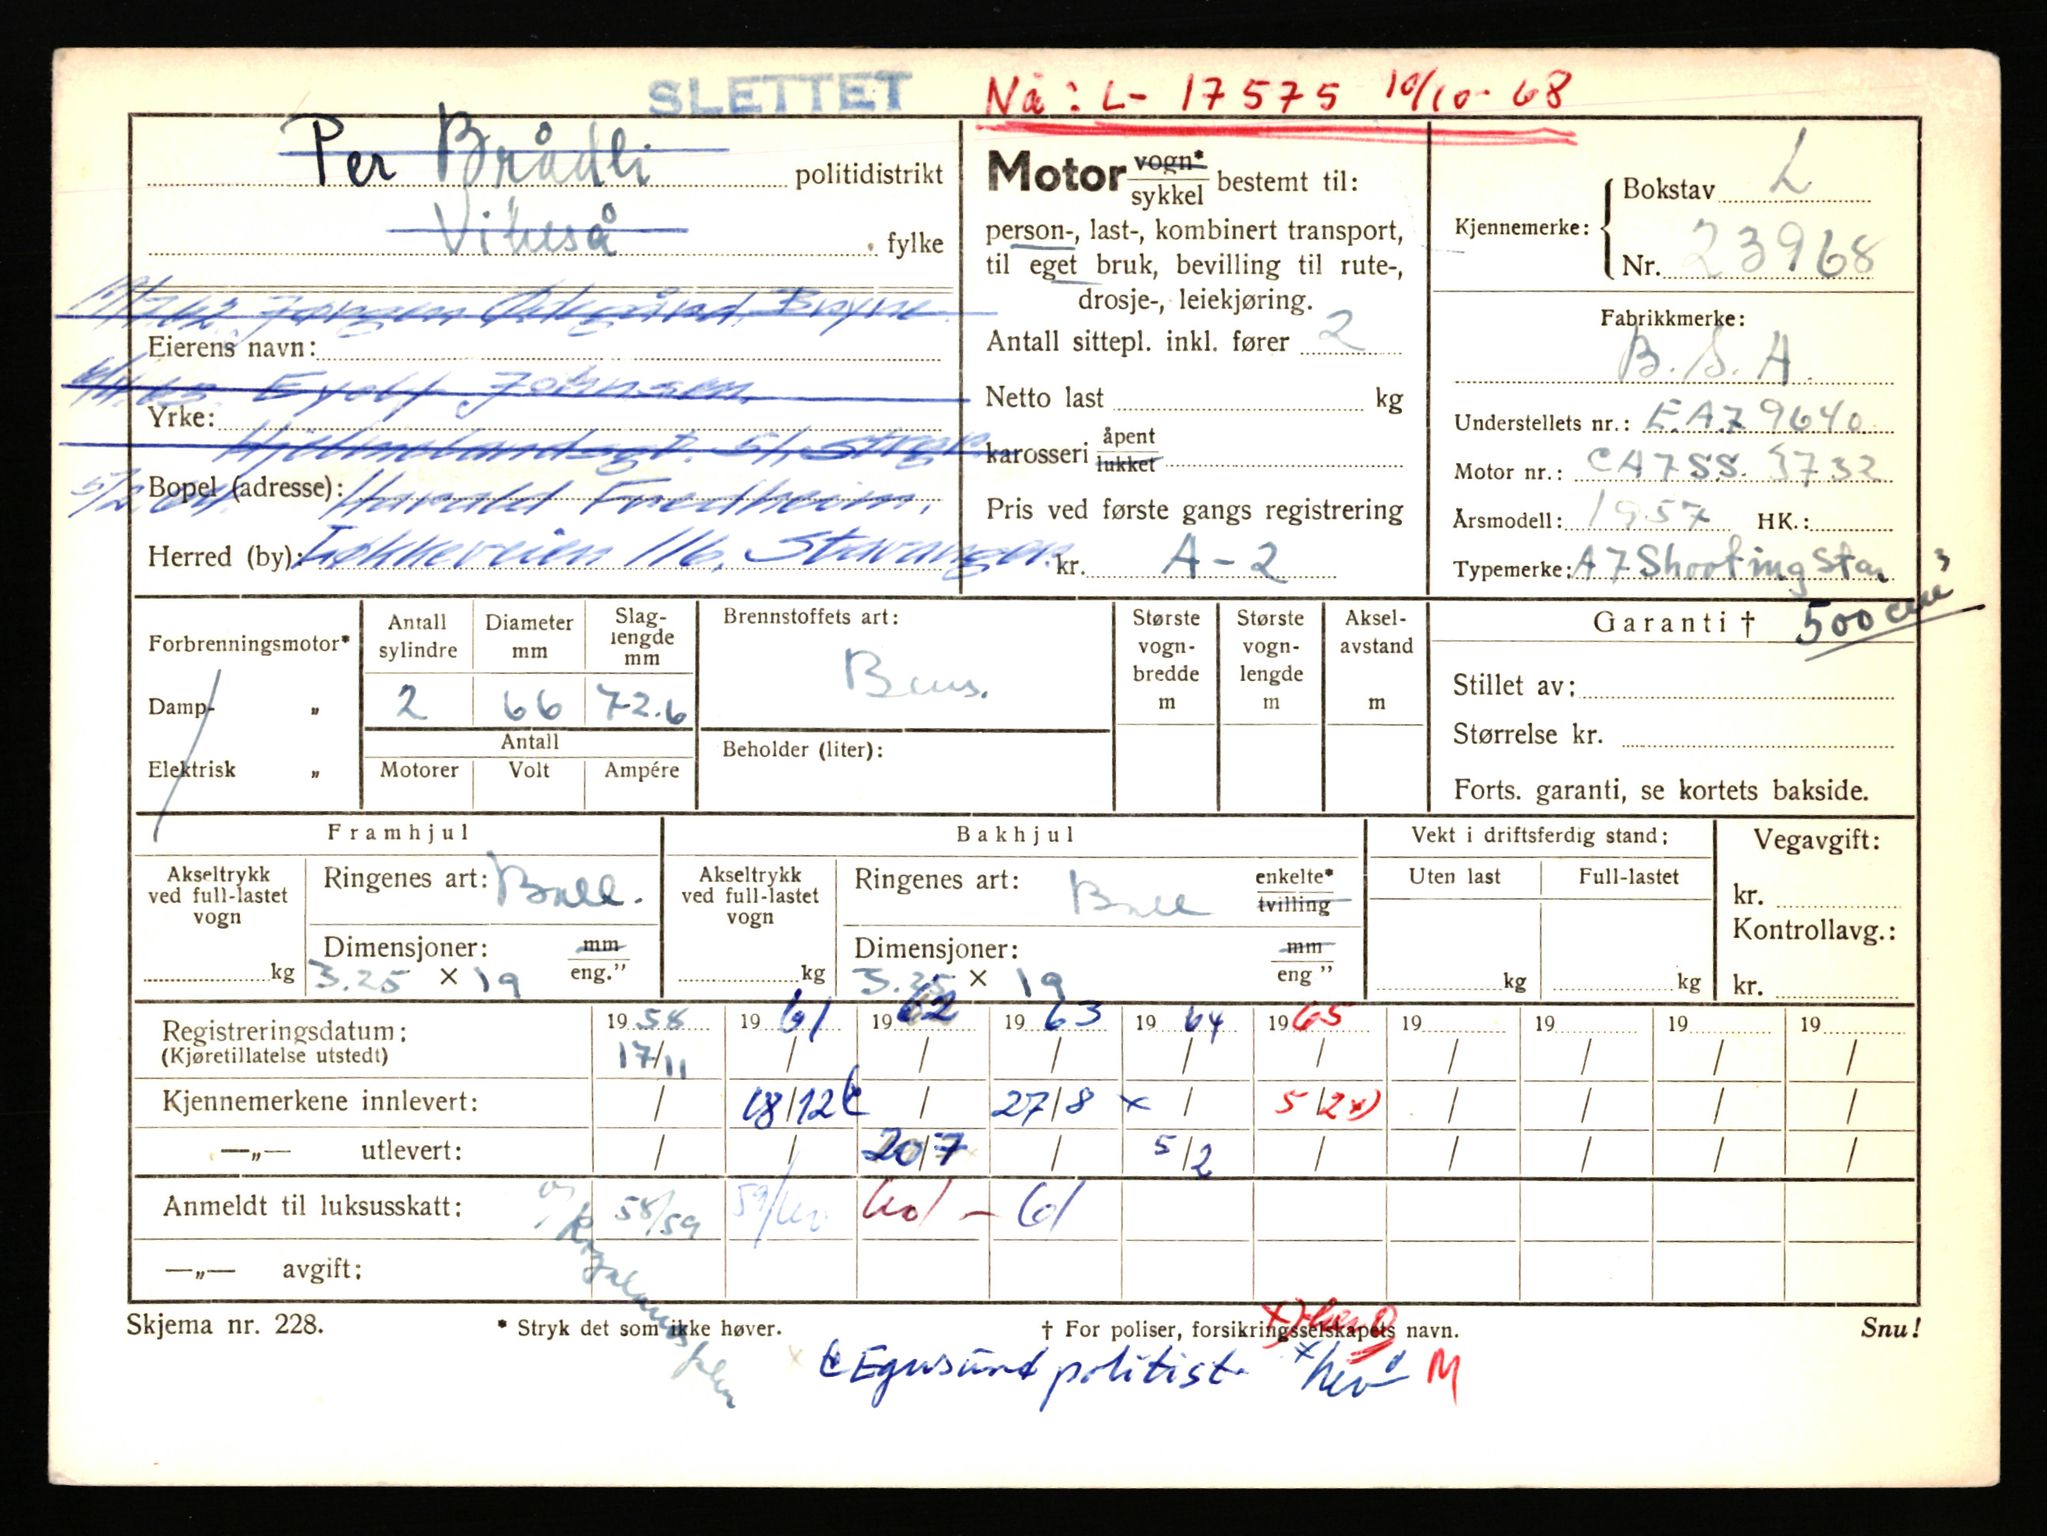 SLETTET Nå: L- 17575 10/10-68
Per Brådli politidistrikt
Vikeså fylke
Jørgen Bryne
Eierens navn:
Johnsen
Yrke:
Hjelmelandsgt. 51, Stvgr.
5/2.64. Bopel (adresse): Harald Fredheim,
Herred (by): Løkkeveien 116, Stavanger.
Motor vogn*
sykkel bestemt til:
person-, last-, kombinert transport,
til eget bruk, bevilling til rute-,
drosje-, leiekjøring.
Antall sittepl. inkl. fører 2
Netto last kg
karosseri åpent
lukket
Pris ved første gangs registrering
kr. A-2
Kjennemerke: Bokstav L
Nr. 23968
Fabrikkmerke:
B.S.A.
Understellets nr.: EA7 9640
Motor nr.: CA7SS. 3732
Årsmodell: 1957 HK.:
Typemerke: A7 Shooting Star
500 cm³
Forbrenningsmotor*
Damp- „
Elektrisk „
Antall sylindre 2
Diameter mm 66
Slag-lengde mm 72.6
Antall
Motorer Volt Ampére
Brennstoffets art:
Bens.
Beholder (liter):
Største vogn-bredde m
Største vogn-lengde m
Aksel-avstand m
Garanti †
Stillet av:
Størrelse kr.
Forts. garanti, se kortets bakside.
Framhjul
Akseltrykk ved full-lastet vogn
kg
Ringenes art: Ball.
Dimensjoner: mm
3.25 × 19 eng."
Bakhjul
Akseltrykk ved full-lastet vogn
kg
Ringenes art: Ball enkelte*
tvilling
Dimensjoner: mm
3.25 × 19 eng "
Vekt i driftsferdig stand:
Uten last Full-lastet
kg kg
Vegavgift:
kr.
Kontrollavg.:
kr.
Registreringsdatum: 19 58 19 61 19 62 19 63 19 64 19 65 19 19 19 19
(Kjøretillatelse utstedt) 17/11 / / / / / / / / /
Kjennemerkene innlevert: / 18/12 / 27/8 × / 5/2 ×) / / / /
—„— utlevert: / / 20/7 / 5/2 / / / / /
Anmeldt til luksusskatt: 58/59 59/60 60/ - 61
—„— avgift:
Skjema nr. 228.
* Stryk det som ikke høver.
† For poliser, forsikringsselskapets navn.
Snu!
Egersund politist. M